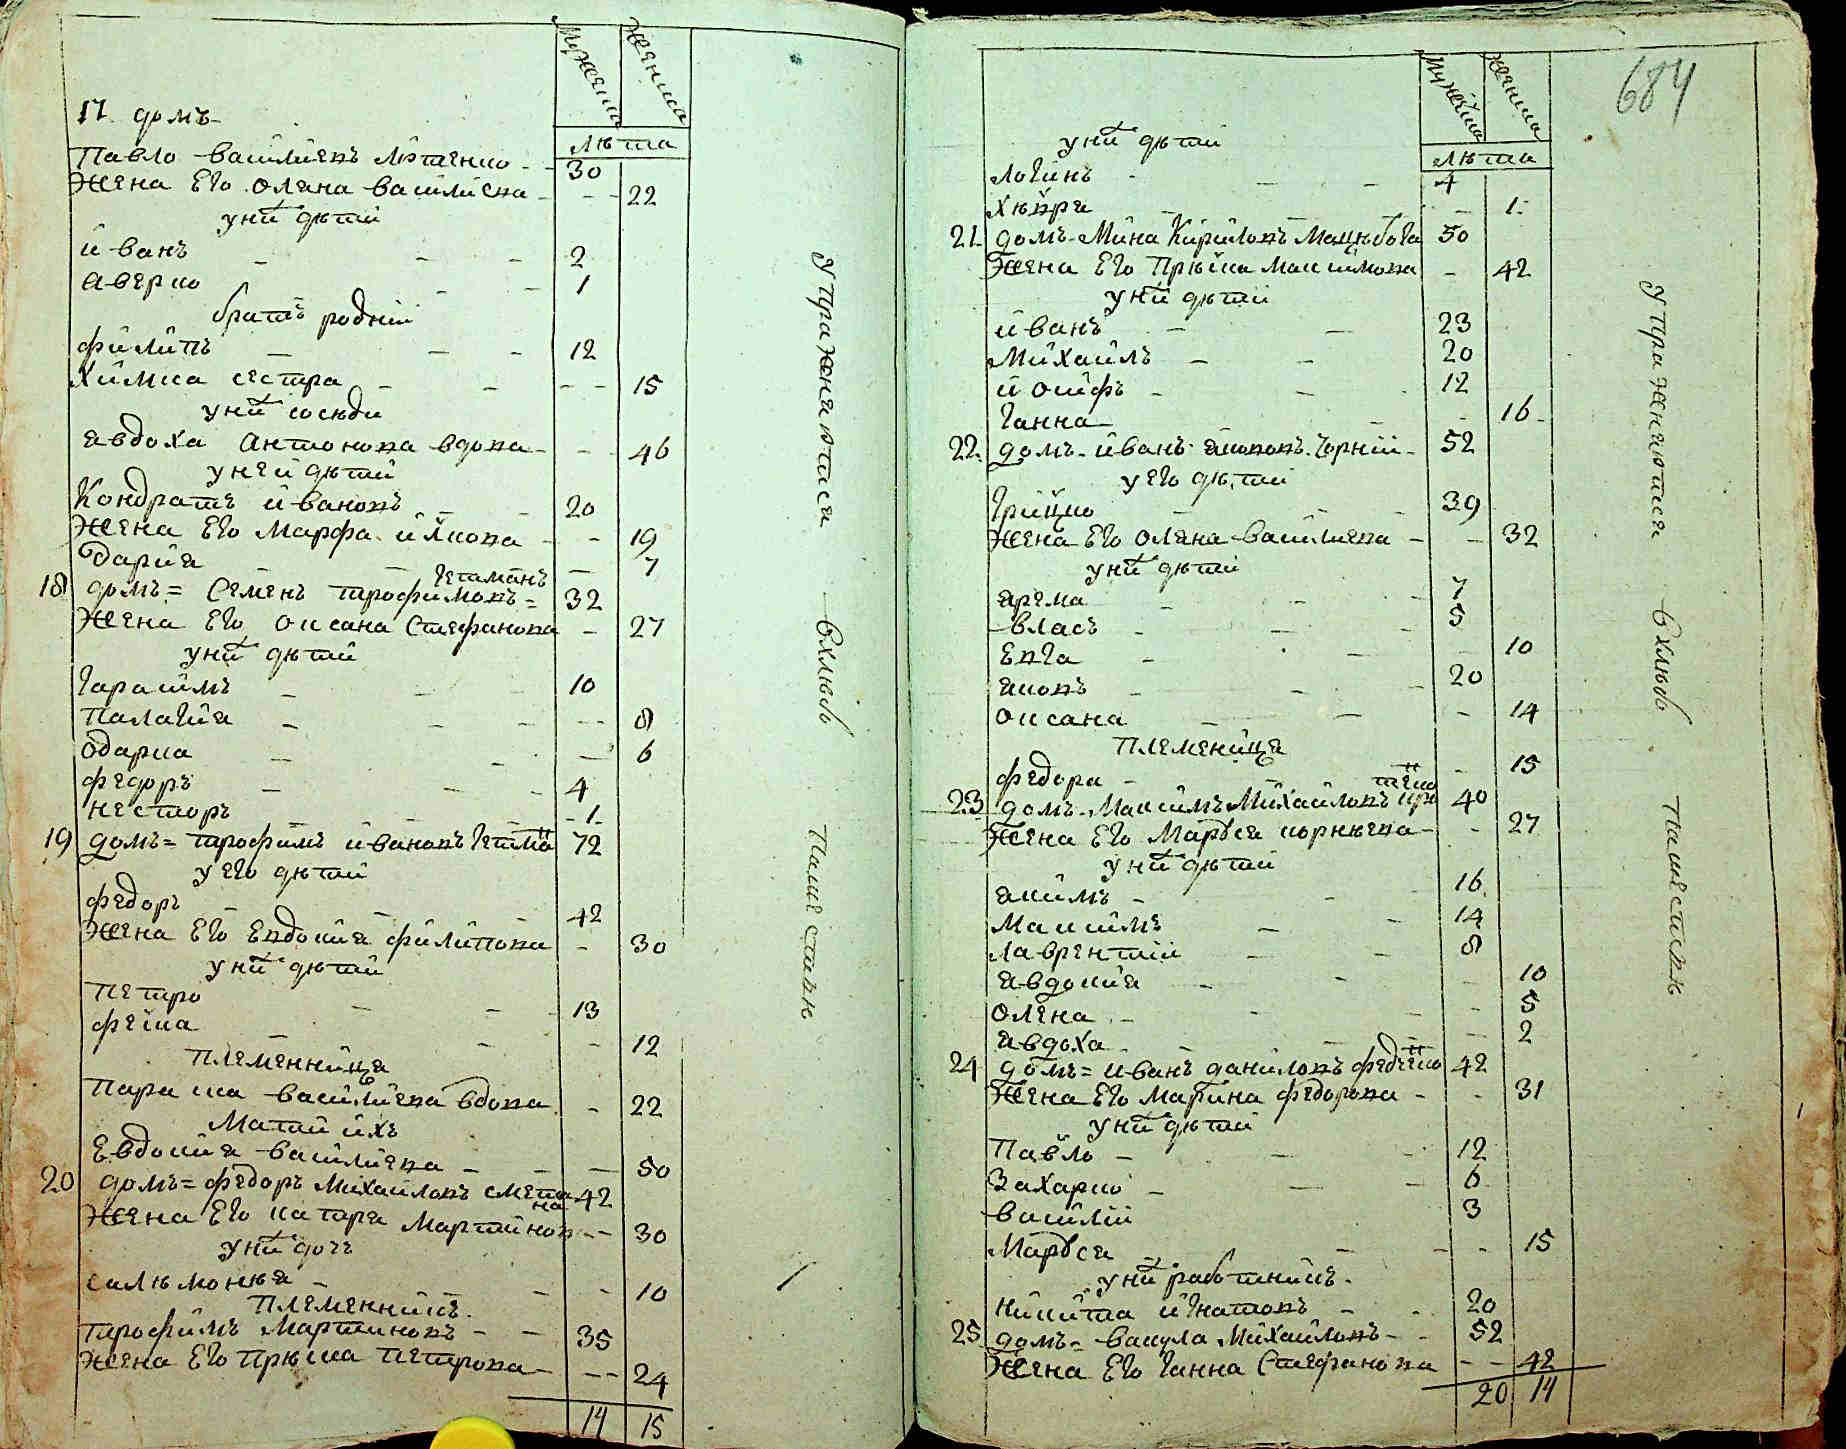 мужеска женска
лѣта
17 домъ
Павло василиевъ литенко 30
жена Его Олена василиева 22
у них дѣтий
Иванъ 2
аверко 1
братъ родній
Филипъ 12
Химка сестра 15
у них сосѣди
авдоха Антонова вдова 46
у неи дѣтий
Кондратъ ивановъ 20
жена Его Марфа 19
Дария 7
гетманъ
18 домъ= Семенъ трофимовъ= 32
жена Его Оксана Стефанова 27
у них дѣтий
гарасимъ 10
Палагия 8
одарка 6
Федоръ 4
несторъ 1
19 домъ= трофимъ ивановъ гетманъ 72
у Его дѣтий
Федоръ 42
жена Его Евдокия филипова 30
у них дѣтий
Петро 13
Феска 12
Племенница
Параска василиева вдова 22
Мати ихъ
Евдокия василиева 50
20 домъ= федоръ Михайловъ сметана 42
жена Его катря Мартинова 30
у них дочъ
Саломония 10
Племенникъ
трофимъ Мартиновъ 35
жена Его Прѣска Петрова 24
14 15
Упражняются в хлѣбопашествѣ
684
мужеска женска
лѣта
у них дѣтий
логинъ 4
хѣвря 1
21 домъ Мина Кириловъ Мацѣбога 50
жена Его Прѣска Максимова 42
у них дѣтий
иванъ 23
Михаилъ 20
иосифъ 12
ганна 16
22 домъ иванъ яковъ чорній 52
у Его дѣтий
грицко 39
жена Его олена василиева 32
у них дѣтий
ярема 7
власъ 5
Евга 10
яковъ 20
оксана 14
Племеница
федора 15
23 домъ Максимъ Михайловъ 40
жена Его Маруся корнѣева 27
у них дѣтий
якимъ 16
Максимъ 14
лаврентій 8
явдокия 10
олена 5
явдоха 2
24 домъ= иванъ даниловъ федченко 42
жена Его Марина федорова 31
у них дѣтий
Павло 12
Захарко 6
василій 3
Маруся 15
у них работникъ
никита игнатовъ 20
25 домъ= вакула Михайловъ 52
жена Его ганна Стефанова 42
20 14
Упражняются в хлѣбопашествѣ